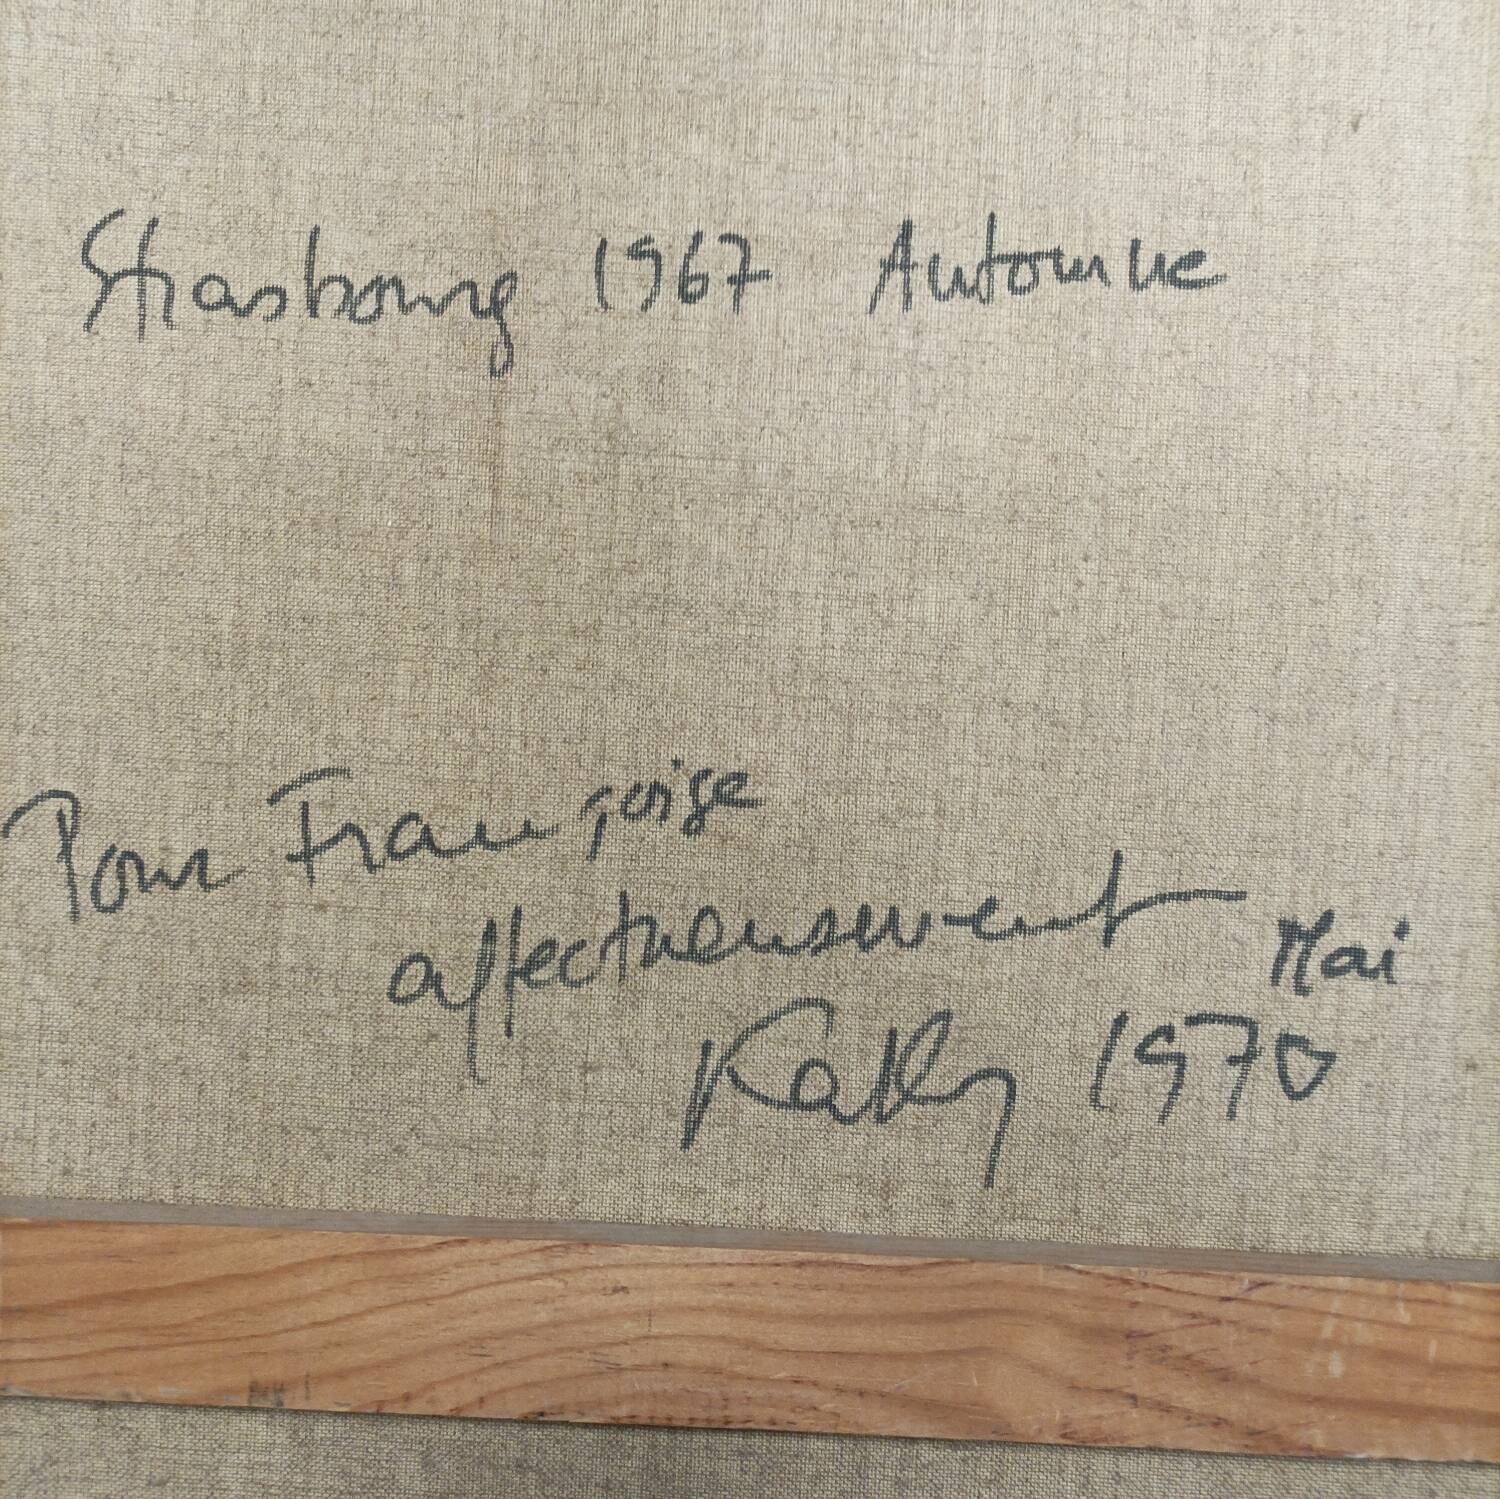 Strasbourg 1967 Automne
Pour Françoise
affectueusement
Mai
1970